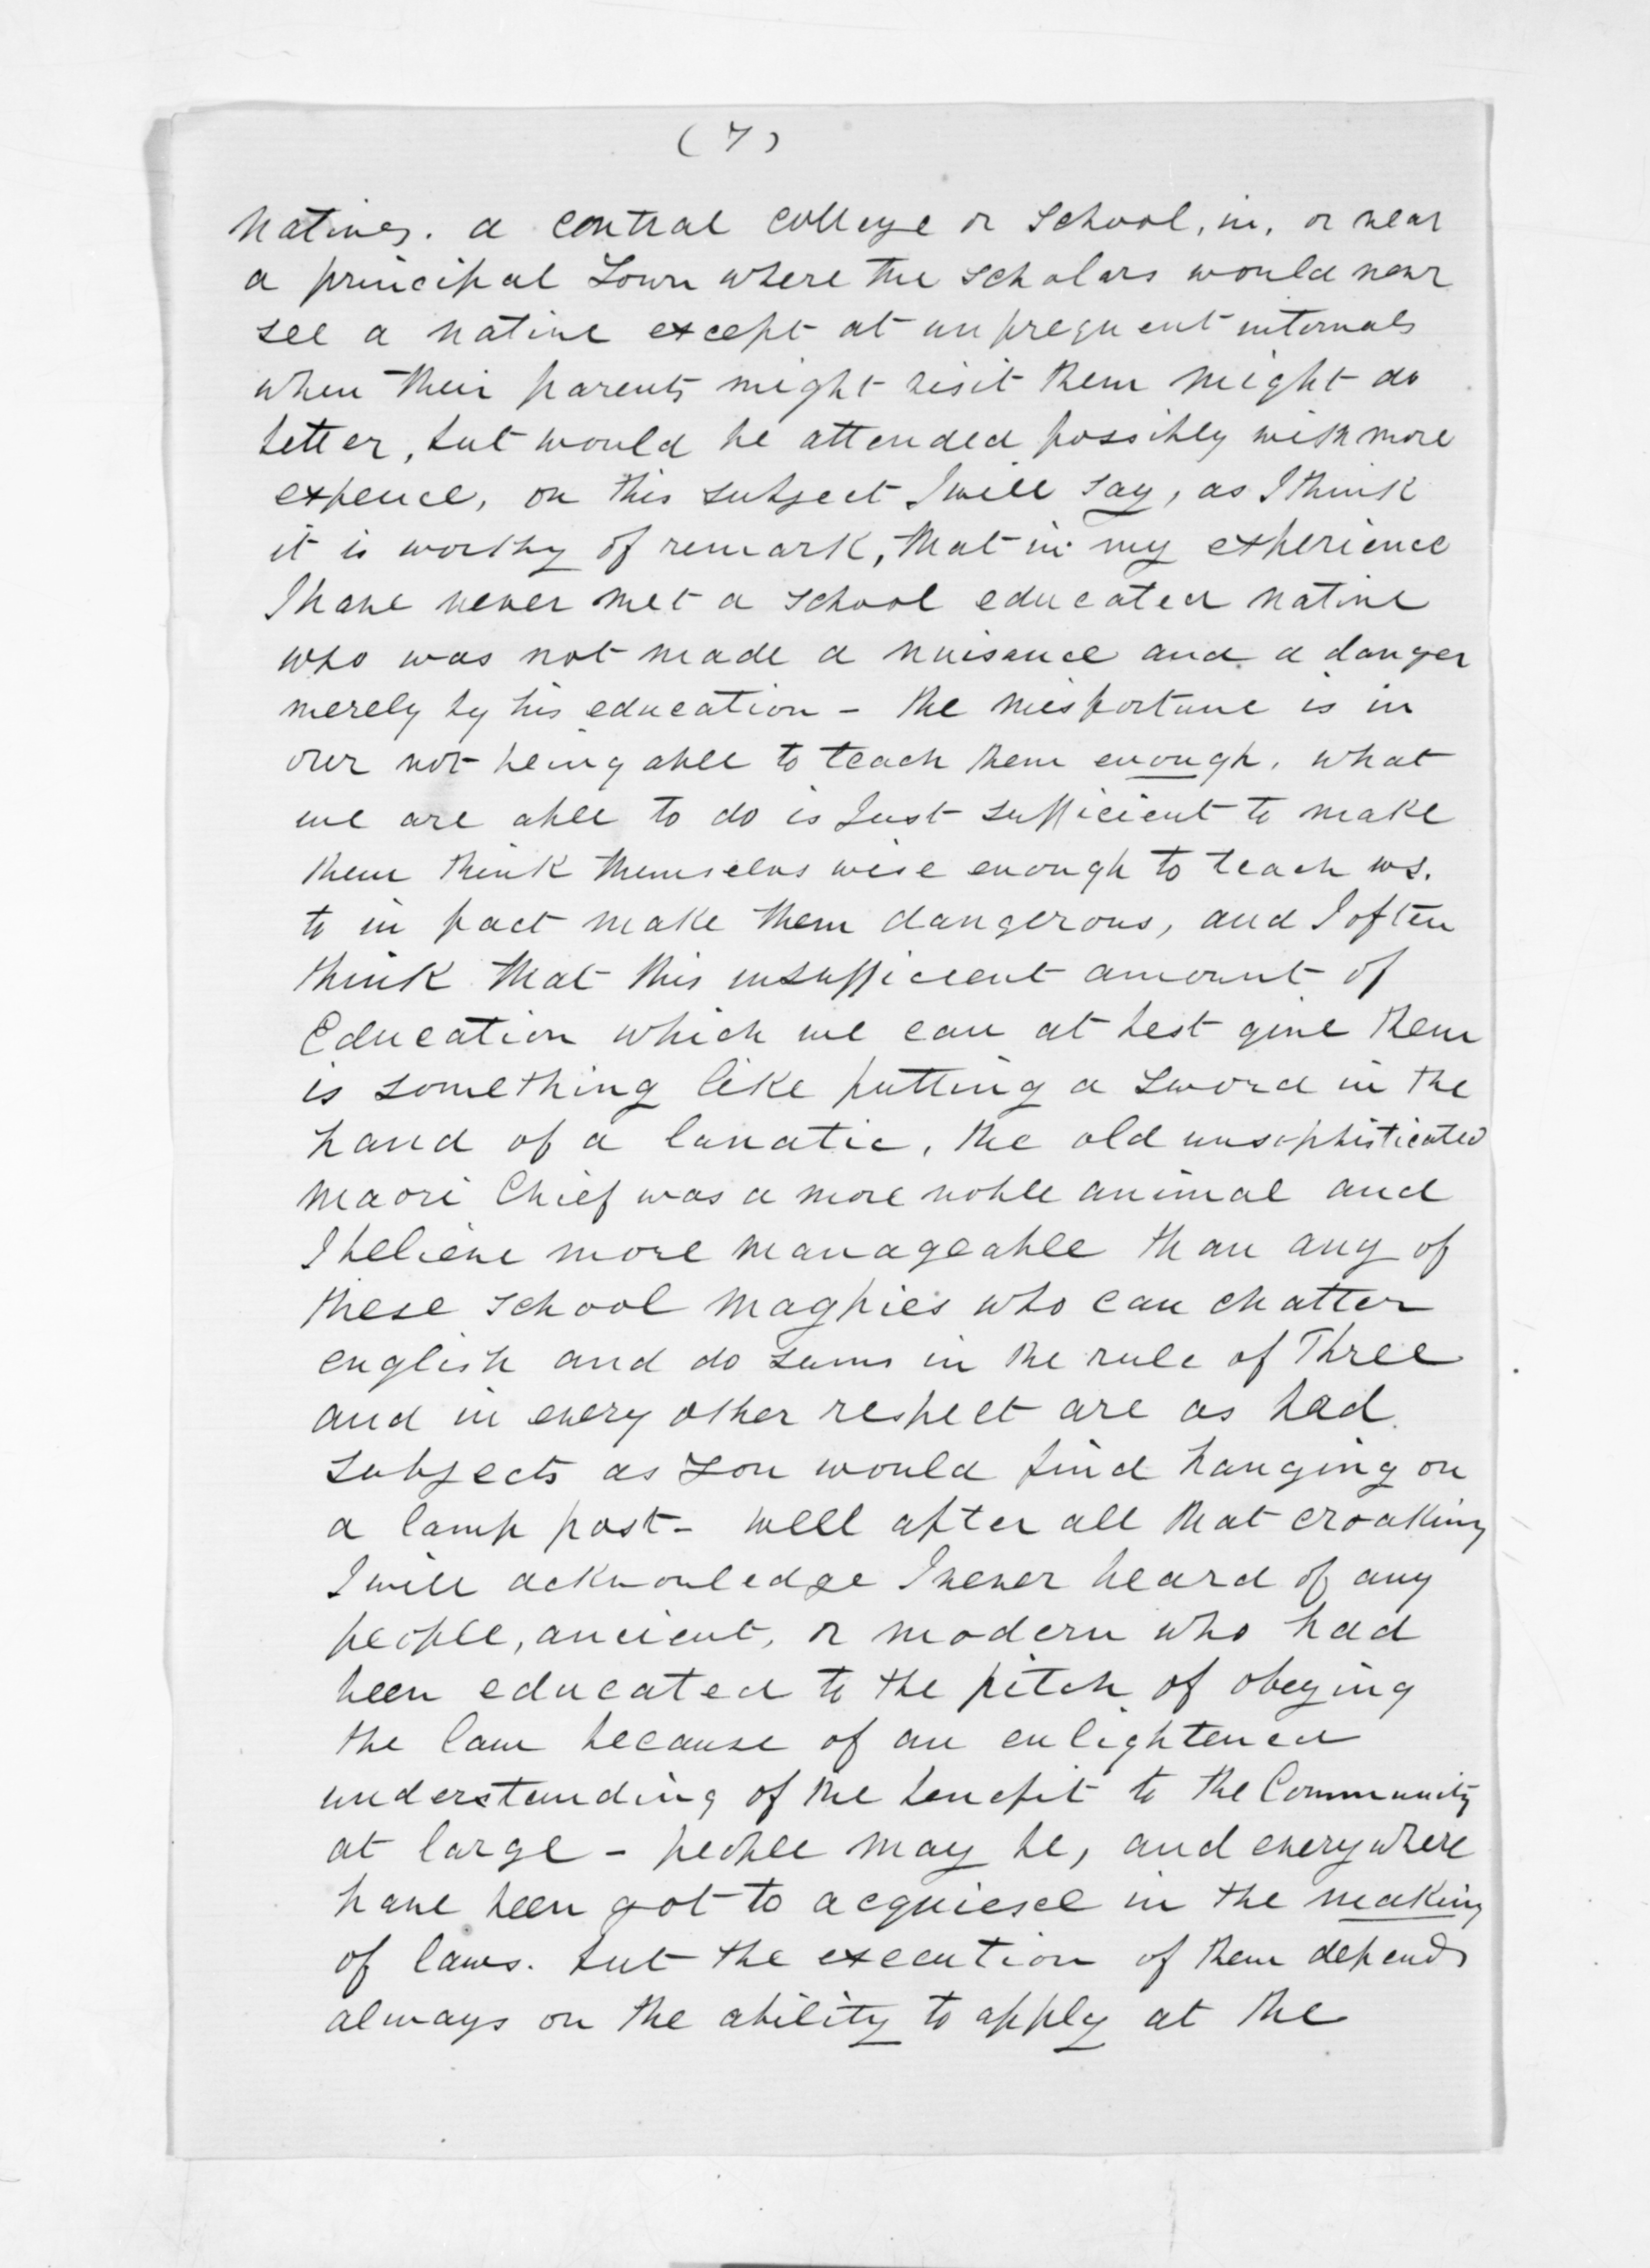 (7)
natives. a central college or school, in, or near
a principal Town where the scholars would never
see a native except at unfrequent intervals
when their parents might visit them might do
better, but would be attended possibly with more
expence, on this subject I will say, as I think
it is worthy of remark, that in my experience
I have never met a school educated native
who was not made a nuisance and a danger
merely by his education – the misfortune is in
our not being able to teach them enough, what
we are able to do is Just sufficient to make
them think themselves wise enough to teach us.
to in fact make them dangerous, and I often
think that this insufficient amount of
Education which we can at best give them
is something like putting a sword in the
hand of a lunatic, the old unsophisticated
maori Chief was a more noble animal and
I believe more manageable than any of
these school magpies who can chatter
english and do sums in the rule of Three
and in every other respect are as bad
subjects as you would find hanging on
a lamp post – well after all that croaking
I will acknowledge I never heard of any
people, ancient, or modern who had
been educated to the pitch of obeying
the law because of an enlightened
understanding of the benefit to the Community
at large – people may be, and everywhere
have been got to acquiesce in the making
of laws. but the execution of them depends
always on the ability to apply at the